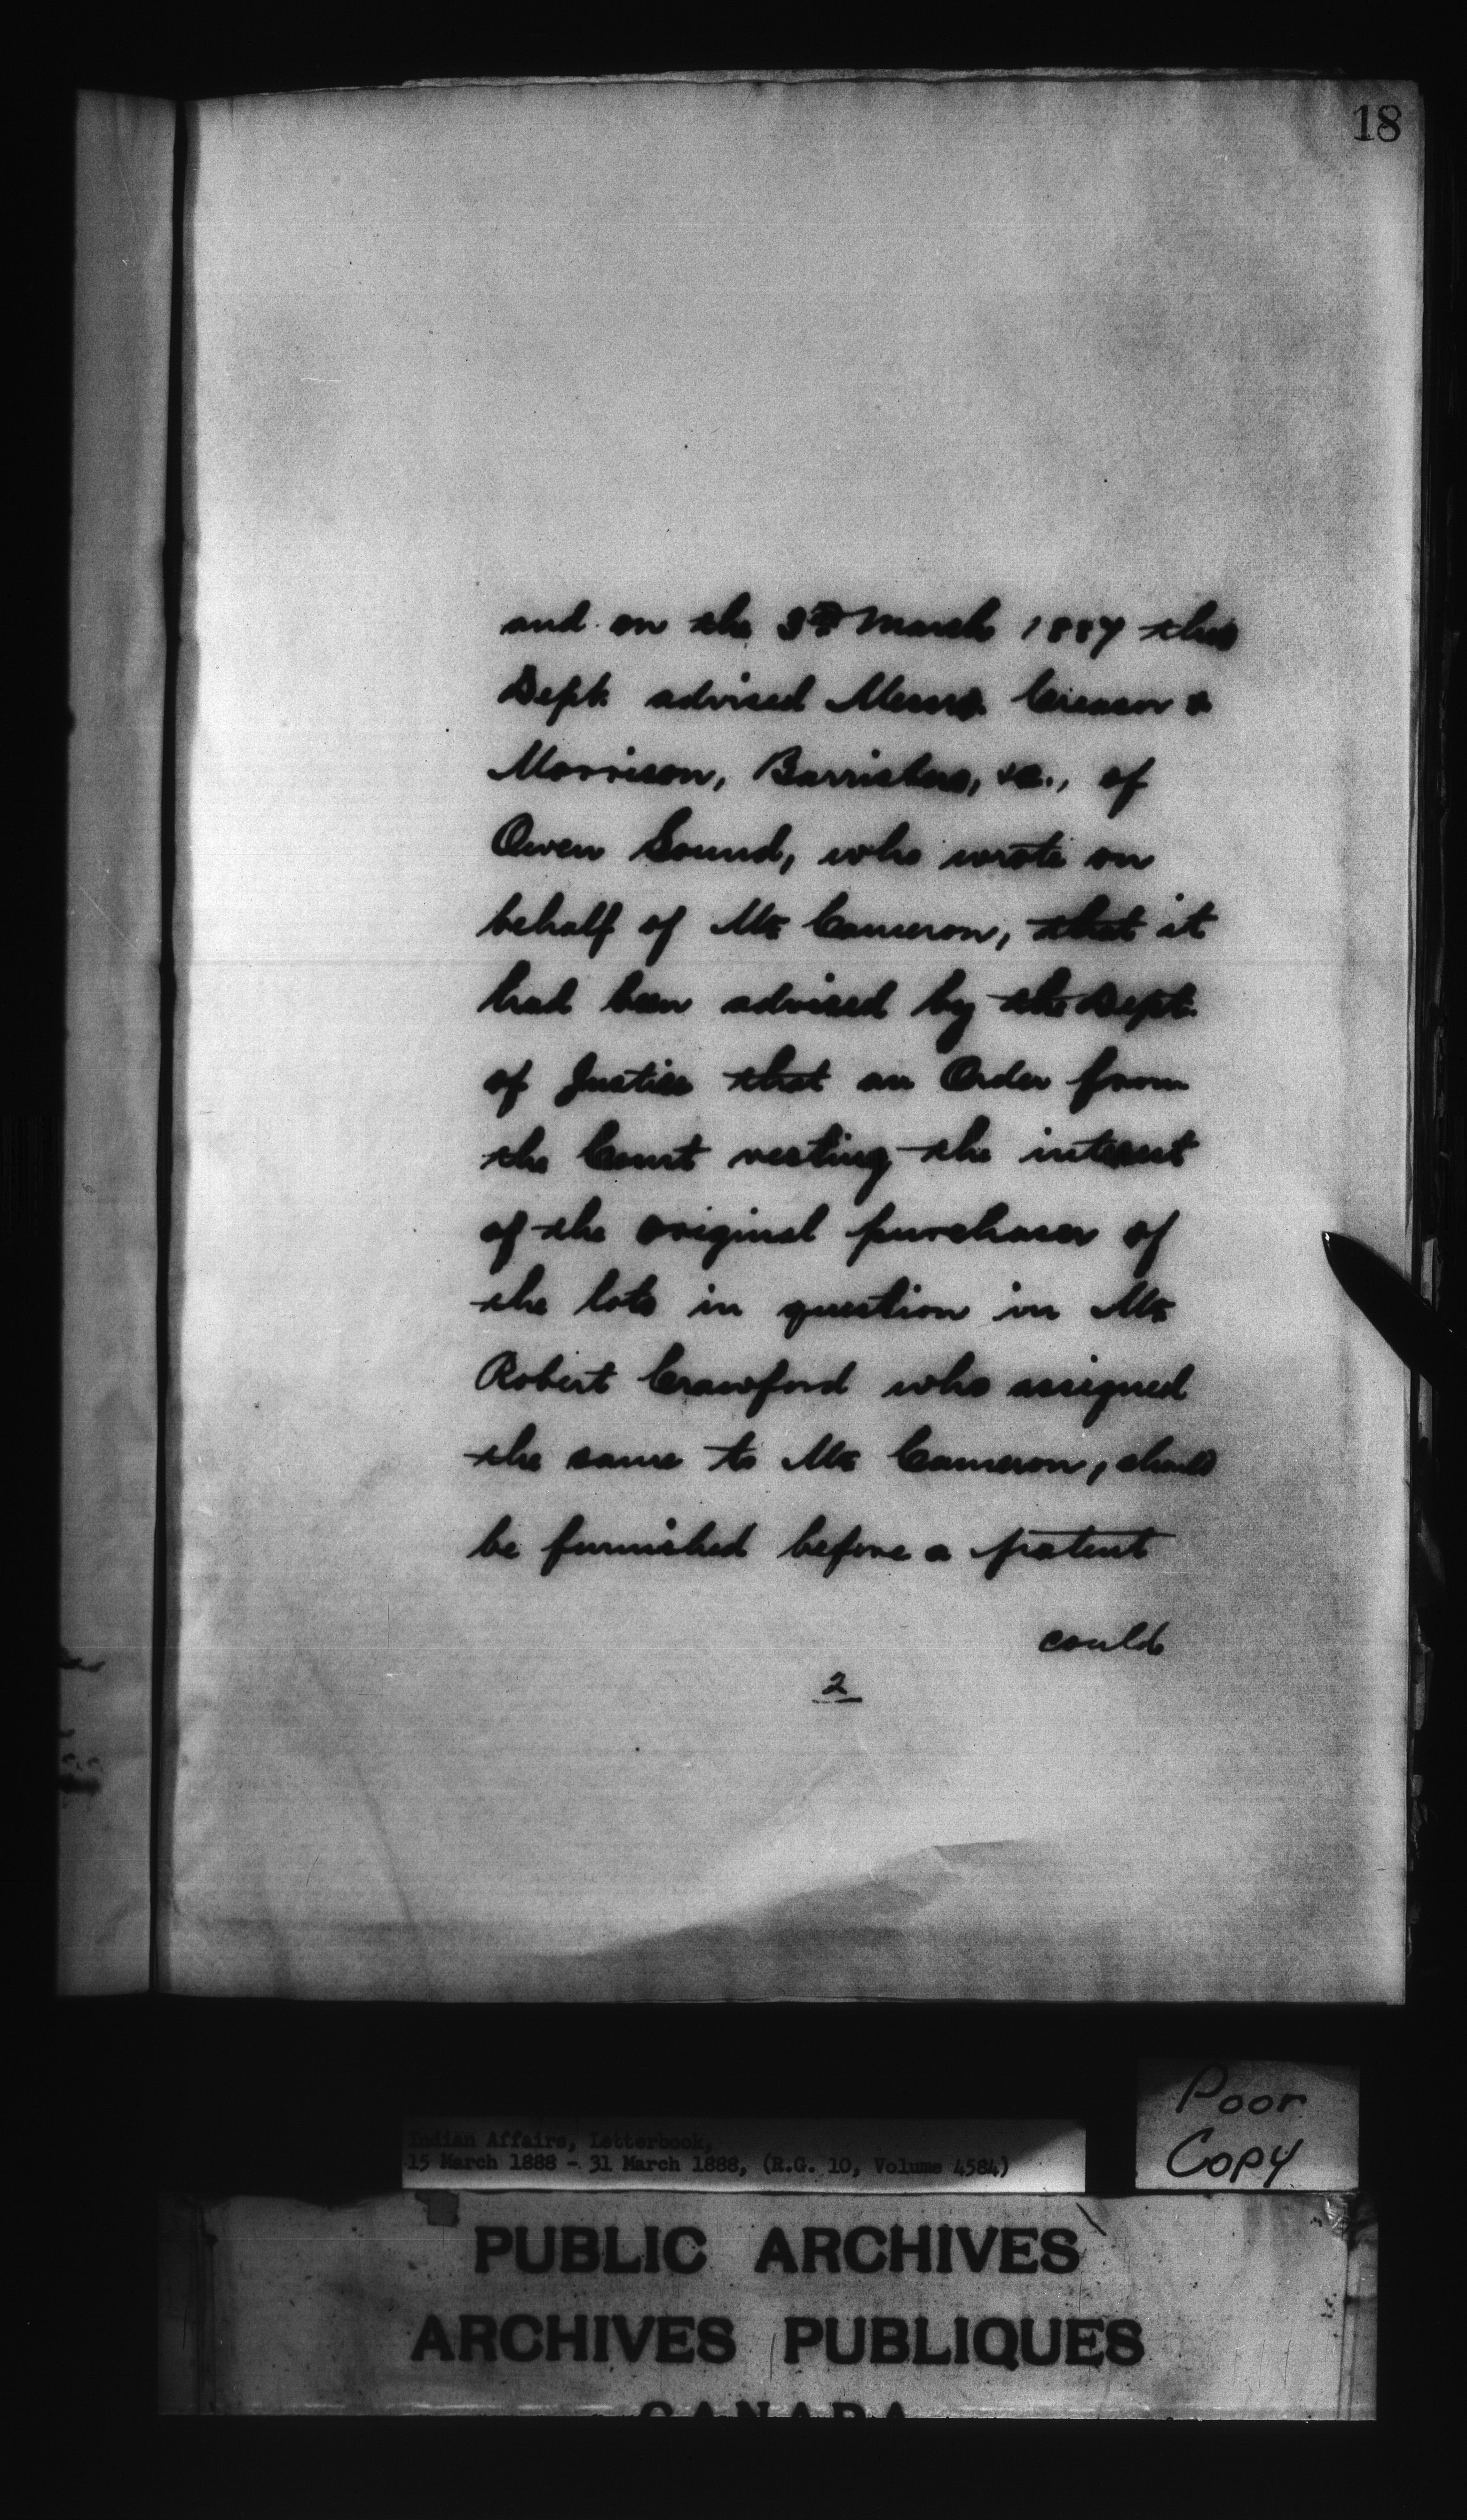 18
and on the 3rd March 1887 this
Dept. advised Messrs. Creasor &
Morrison, Barristers, &c., of
Owen Sound, who wrote on
behalf of Mr Cameron, that it
had been advised by the Dept.
of Justice that an Order from
the Court vesting the interest
of the original purchaser of
the lots in question in Mr
Robert Crawford who assigned
the same to Mr Cameron, should
be furnished before a patent
could
2
Poor
Copy
Indian Affairs, Letterbook,
15 March 1888 - 31 March 1888, (R.G. 10, Volume 4584)
PUBLIC ARCHIVES
ARCHIVES PUBLIQUES
CANADA